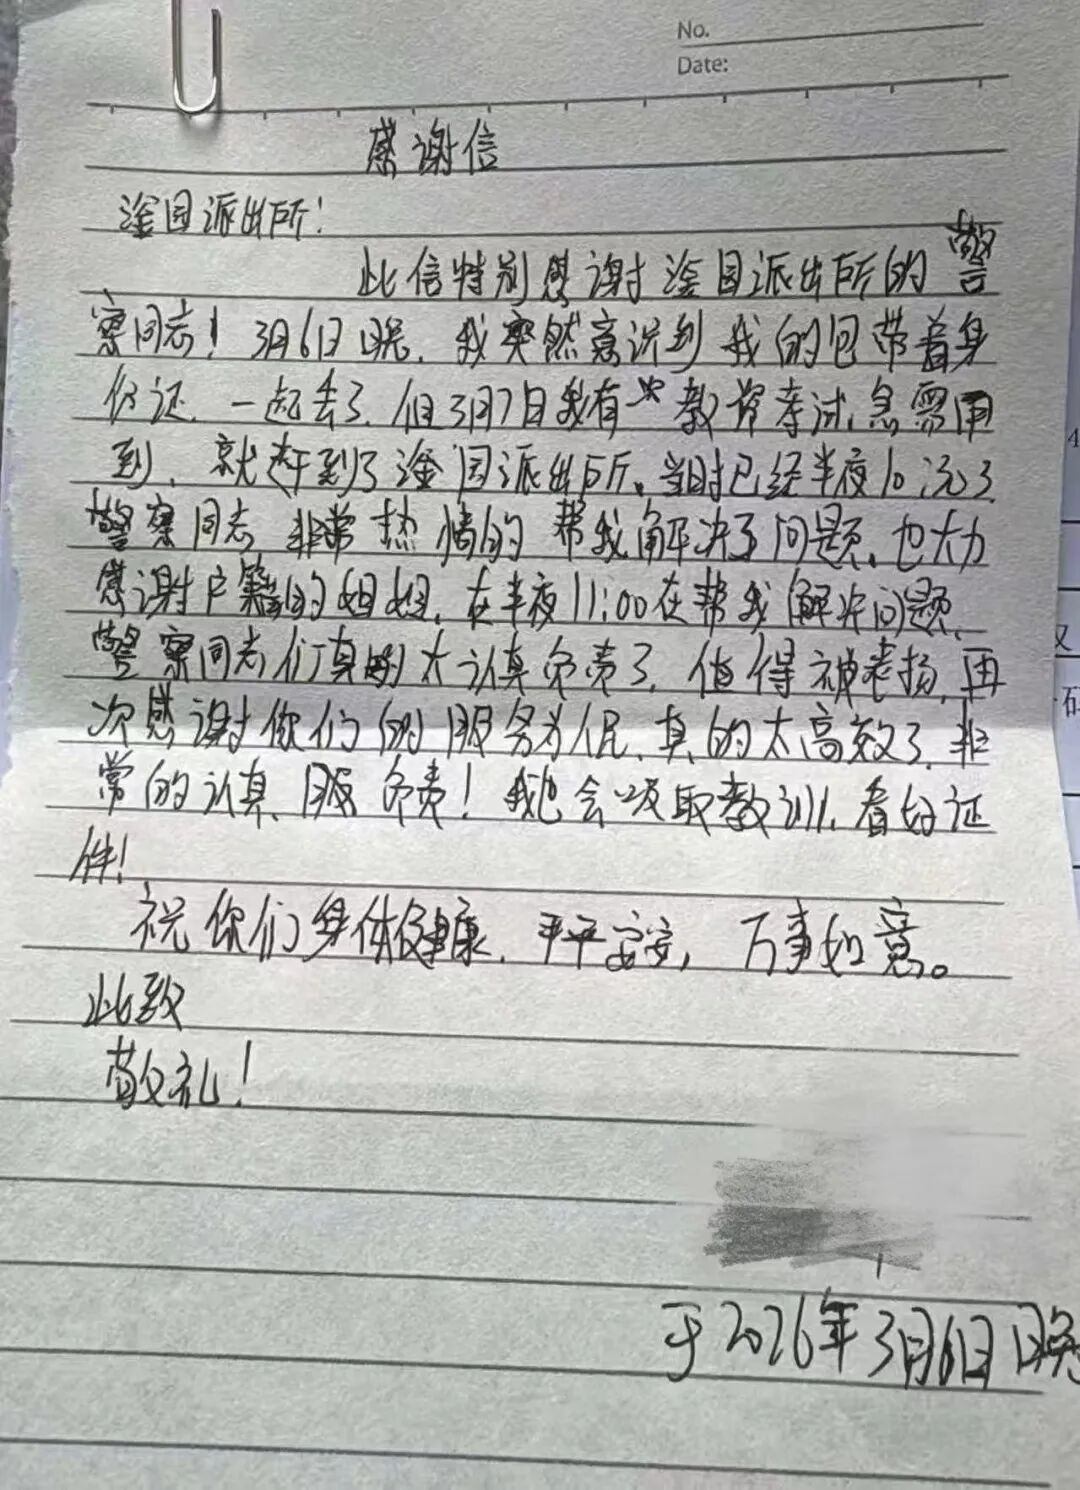 No.
Date:
感谢信
淦园派出所！
此信特别感谢淦园派出所的警
察同志！3月6日晚，我突然意识到我的包带着身
份证，一起丢了，但3月7日我有教资考试，急需用
到，就赶到了淦园派出所。当时已经半夜10:70了
警察同志非常热情的帮我解决了问题。也大力
感谢户籍的姐姐，在半夜11:00在帮我解决问题，
警察同志们真的太认真负责了，值得被表扬，再
次感谢你们的服务为人民，真的太高效了，非
常的认真、服 负责！我也会吸取教训，看好证
件！
祝你们身体健康，平平安安，万事如意。
此致
敬礼！
于2026年3月6日晚